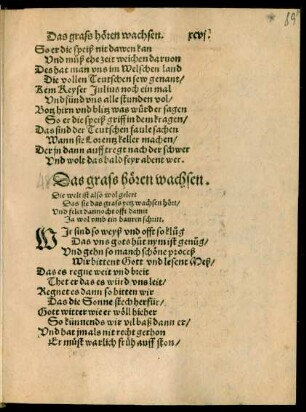 Das grass hören wachsen. xcvj.
So er die speiß nit dawen kan
Und můß ehe zeit weichen darvon
Des hat man vns im Welschen land
Die vollen Teutschen sew genant/
Kem Keyser Julius noch ein mal
Vnd fünd vns alle stunden vol/
Botz hirn vnd blitz was würder sagen
So er die speiß griff in dem kragen/
Das sind der Teutschen saule sachen
Wann sie Lorentz keller machen/
Der in dann auff tregt nach der schwer
Vnd wolt das bald feyr abent wer.
Das grass hören wachsen.
Die welt ist also wol gelert
Das sie das grass yetz wachsen hört/
Vnd felet dannocht offt damit
Ja wol vmb ein bauren schrit.
WIr sind so weyß vnd offt so klůg
Das vns gots hůt nym ist genůg/
Vnd gehn so manch schöne proceß
Wir bitten Got vnd lesent Meß/
Das es regne weit vnd breit
Thet er das es würd vns leit/
Regnet es dann so bitten wir
Das die Sonne stech herfür/
Gott witter wie er wöll hieher
So künnends wir vil baß dann er/
Vnd hat jm als nit recht gethon
Er můst warlich früh auff ston/